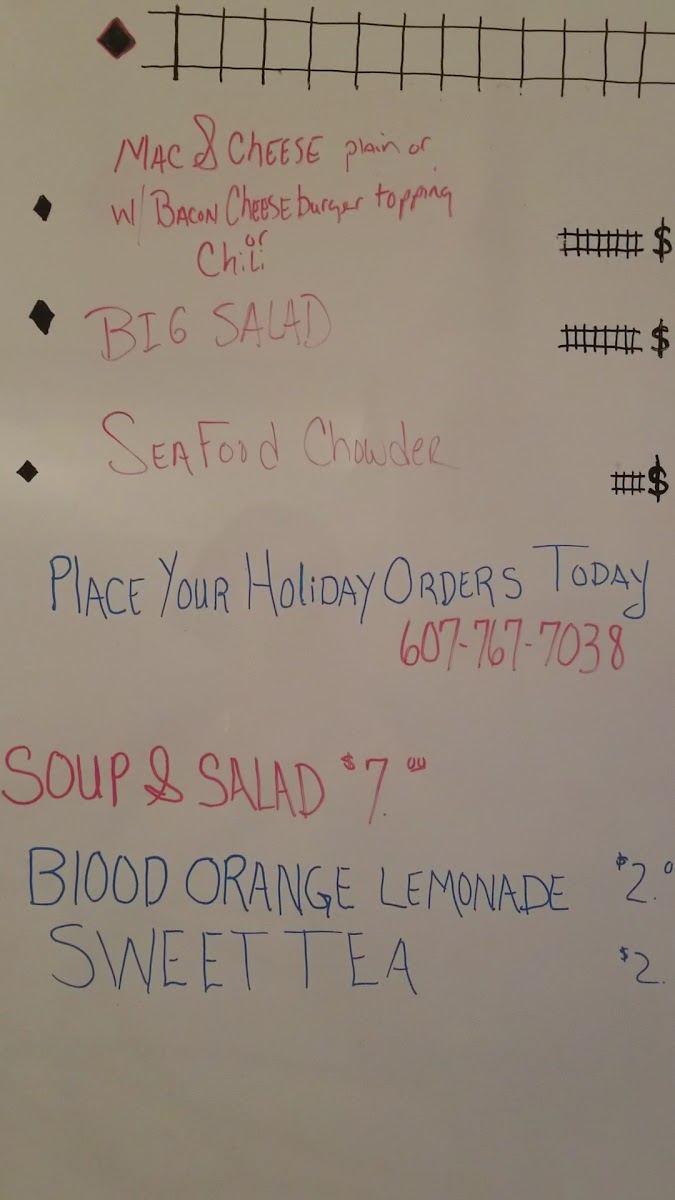 MAC & CHEESE plain or
W/ BACON CHEESEburger topping $
or
Chili
BIG SALAD $
SEAFood Chowder $
PlACE YOUR HoliDAY ORDERS TODAY
607-767-7038
SOUP & SALAD $7.00
BlOOD ORANGE LEMONADE $2.0
SWEET TEA $2.